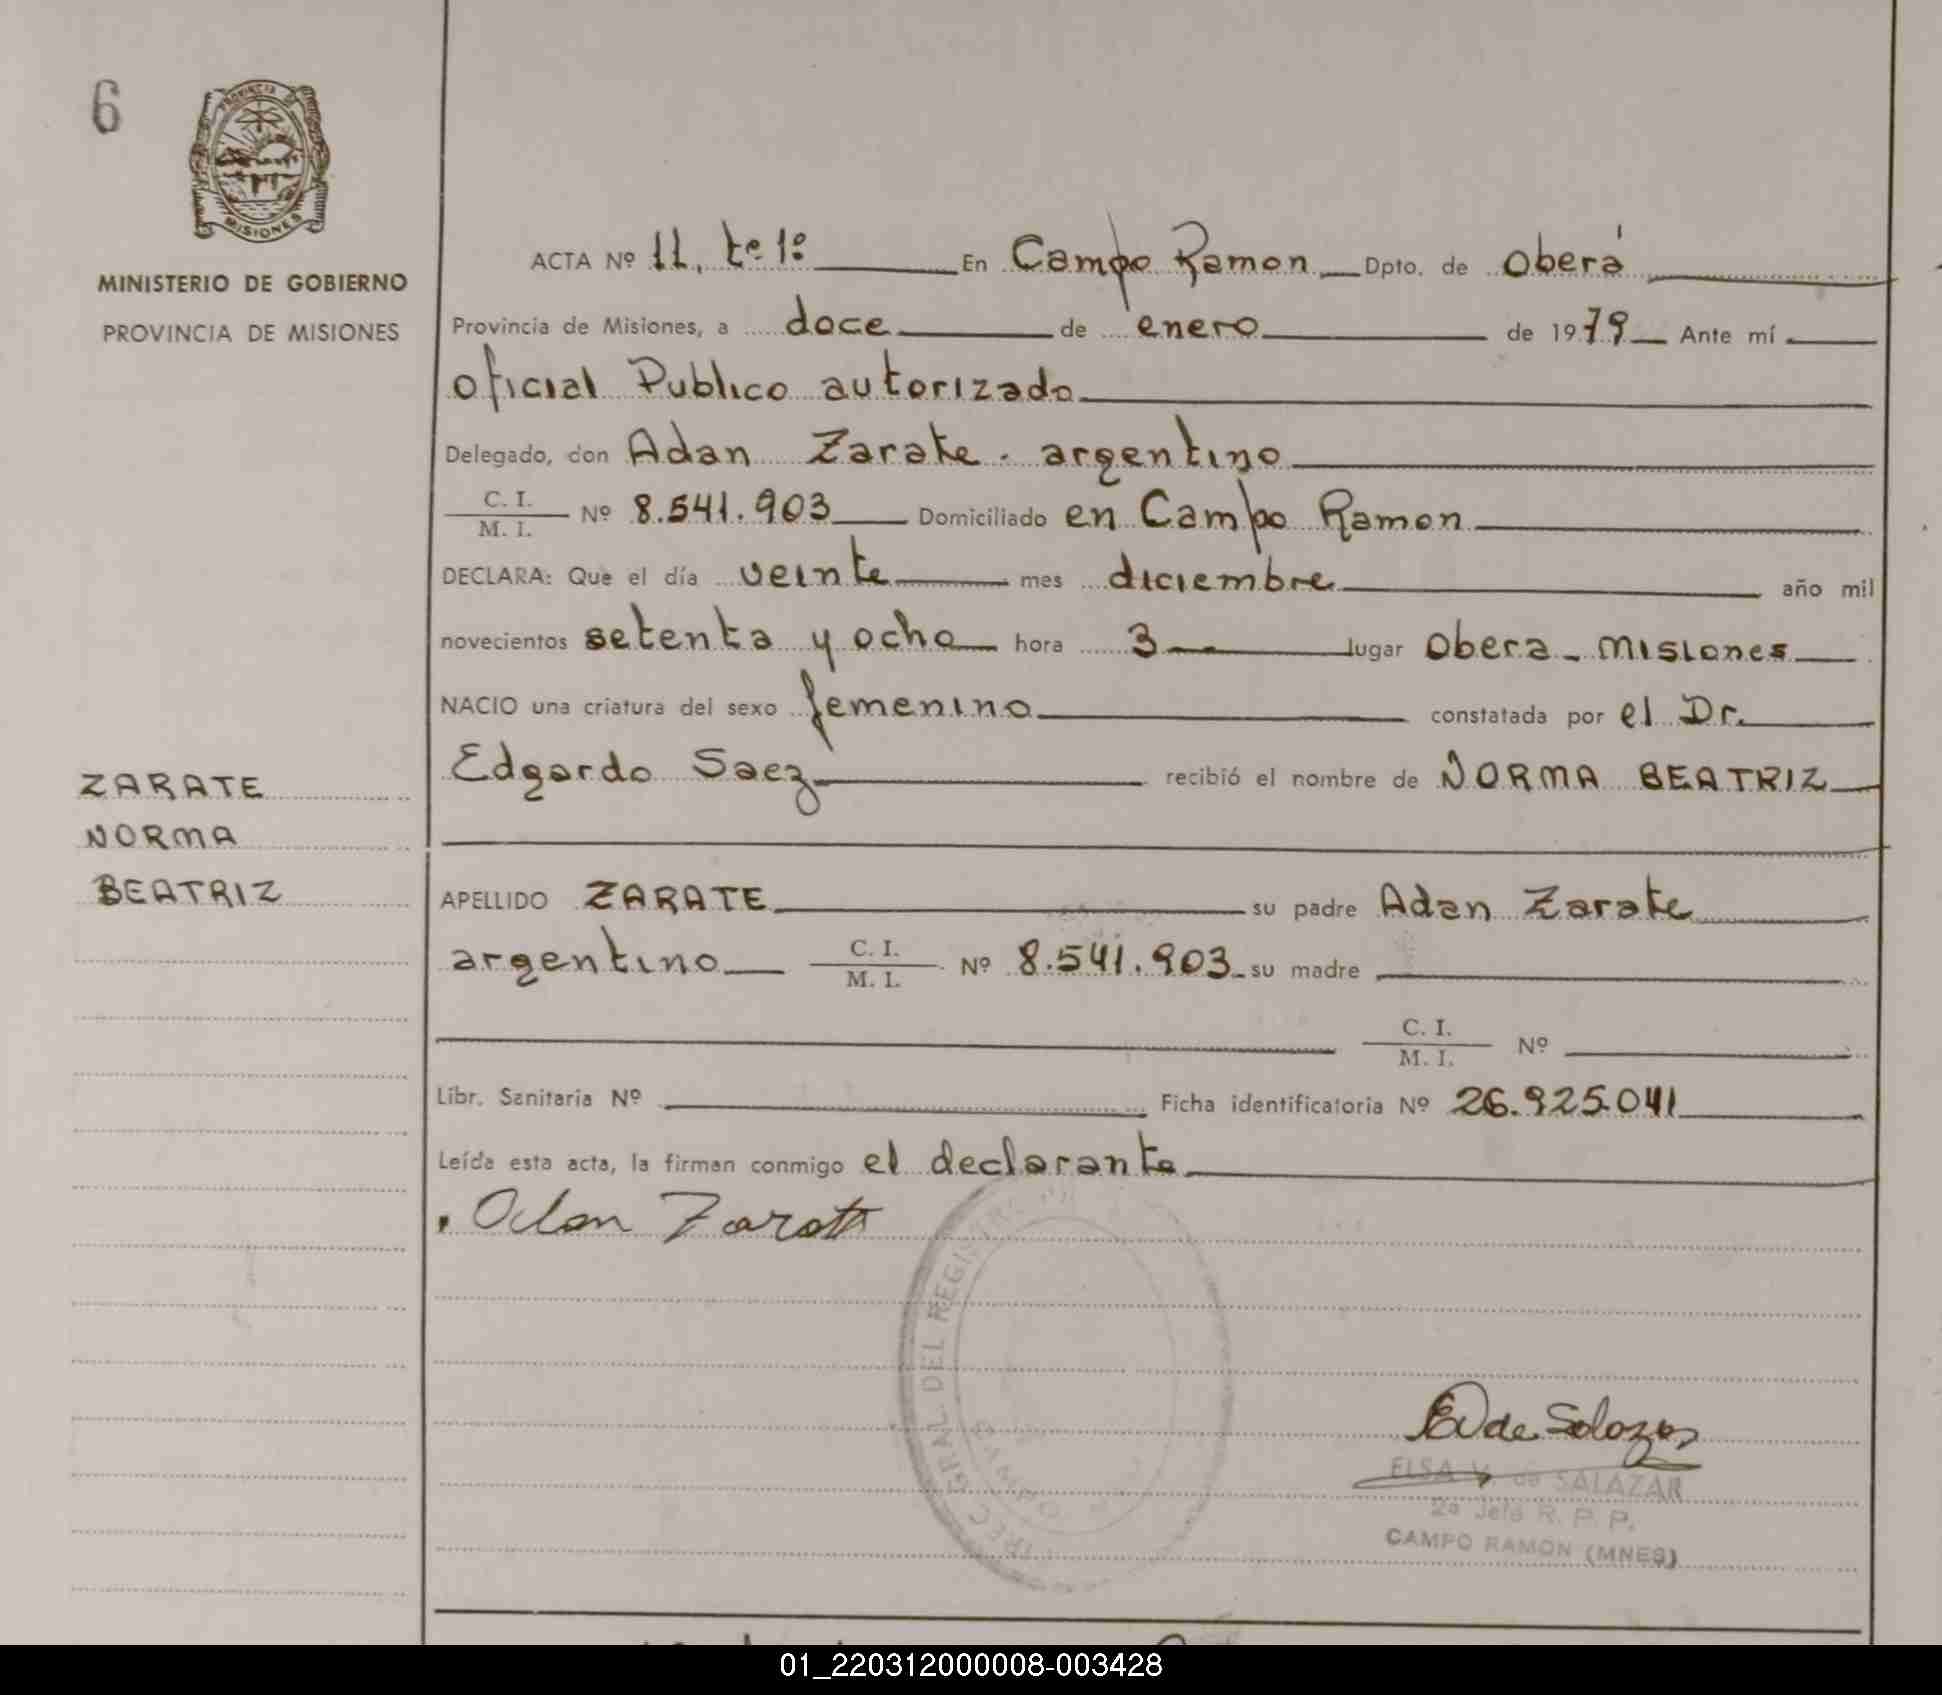 6
PROVINCIA DE
MISIONES
MINISTERIO DE GOBIERNO
PROVINCIA DE MISIONES
ACTA Nº 11, tº 1º En Campo Ramon Dpto. de Oberá
Provincia de Misiones, a doce de enero de 1979 Ante mí
oficial Publico autorizado
Delegado, don Adan Zarate. argentino
C. I.
M. I. Nº 8.541.903 Domiciliado en Campo Ramon
DECLARA: Que el día veinte mes diciembre año mil
novecientos setenta y ocho hora 3 lugar Obera - misiones
NACIO una criatura del sexo femenino constatada por el Dr.
Edgardo Saez recibió el nombre de NORMA BEATRIZ
ZARATE
NORMA
BEATRIZ
APELLIDO ZARATE su padre Adan Zarate
argentino C. I.
M. I. Nº 8.541.903 su madre
C. I.
M. I. Nº
Libr. Sanitaria Nº Ficha identificatoria Nº 26.925.041
Leída esta acta, la firman conmigo el declarante
Adan Zarate
GRAL. DEL REGISTRO
CAMPO
EV de Salazar
ELSA V. de SALAZAR
2a Jefa R. P. P.
CAMPO RAMON (MNES)
01_220312000008-003428